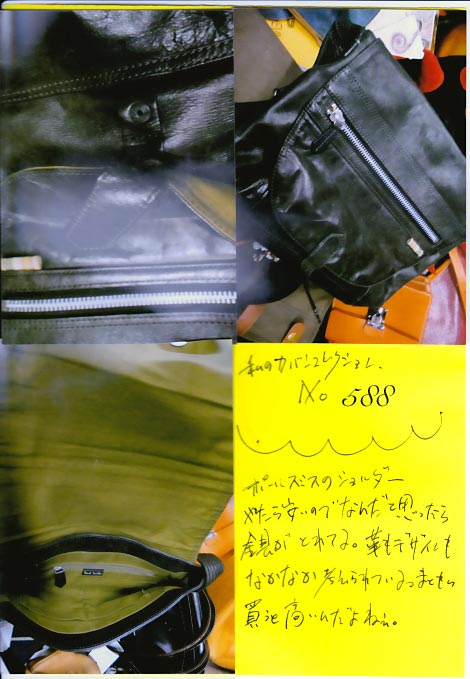 私のカバンコレクション、
No 588
ポールスミスのショルダー
やたら安いのでなんだと思ったら
金具がとれてる。革もデザインも
なかなか考えられている
買うと高いんだよねぇ。